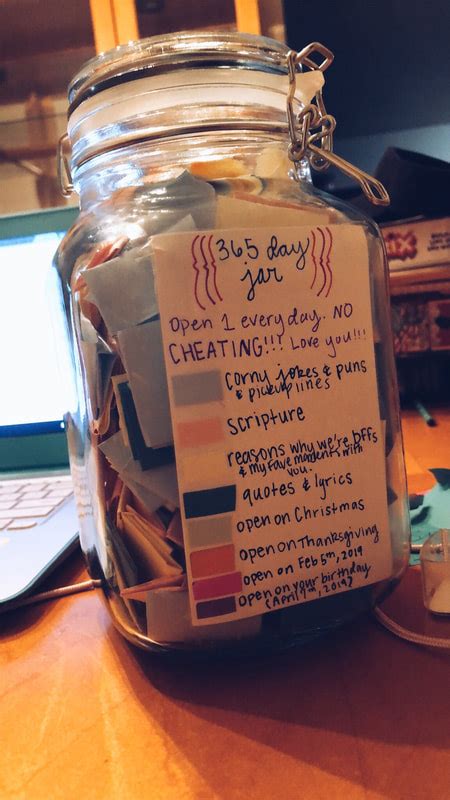 365 day
jar
Open 1 every day. NO
CHEATING!!! Love you!!!
corny jokes & puns
& pickup lines
scripture
reasons why we're bffs
& my fave moments with
you.
quotes & lyrics
open on Christmas
open on Thanksgiving
open on Feb 5th, 2019
open on your birthday
(April 9th, 2019)